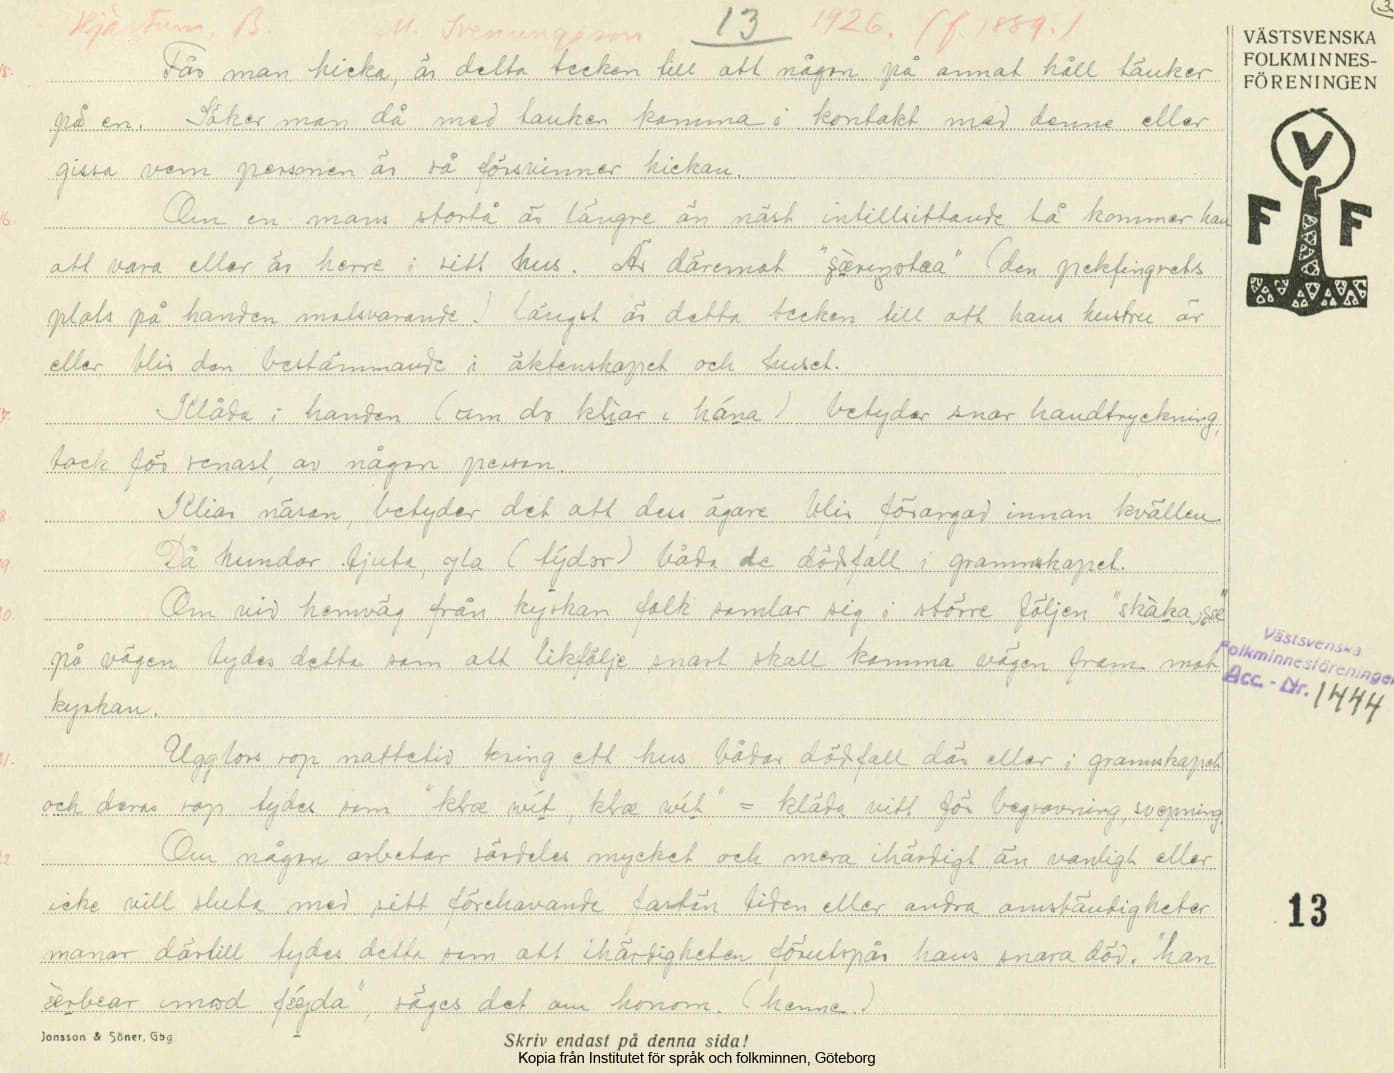 Hjärtum, B. M. Svenungsson 13 1926. (f. 1889.)
VÄSTSVENSKA
FOLKMINNES-
FÖRENINGEN
V
F F
15. Får man hicka, är detta tecken till att någon på annat håll tänker
på en. Söker man då med tanken komma i kontakt med denne eller
gissa vem personen är så försvinner hickan.
16. Om en mans stortå är längre än näst intillsittande tå kommer han
att vara eller är herre i sitt hus. Är däremot (den pekfingrets
plats på handen motsvarande) längst är detta tecken till att hans hustru är
eller blir den bestämmande i äktenskapet och huset.
17. Klåda i handen (om dr kliar i hána) betyder snar handtryckning,
tack för senast, av någon person.
18. Kliar näsan, betyder det att dess ägare blir förargad innan kvällen.
19. Då hundar tjuta, yla (týdor) båda de dödsfall i grannskapet.
20. Om vid hemväg från kyrkan folk samlar sig i större följen
på vägen tydes detta som att likfölje snart skall komma vägen fram mot
kyrkan.
21. Ugglors rop nattetid kring ett hus bådar dödsfall där eller i grannskapet
och deras rop tydes som "klæ wít, klæ wít" = kläda vitt för begravning, svepning.
22. Om någon arbetar särdeles mycket och mera ihärdigt än vanligt eller
icke vill sluta med sitt förehavande fastän tiden eller andra omständigheter
manar därtill tydes detta som att ihärdigheten förutspår hans snara död. "han
ærbear imod féyda", säges det om honom. (henne.)
Västsvenska
Folkminnesföreningen
Acc. - Nr. 1444
13
Jonsson & Söner, Gbg
Skriv endast på denna sida!
Kopia från Institutet för språk och folkminnen, Göteborg